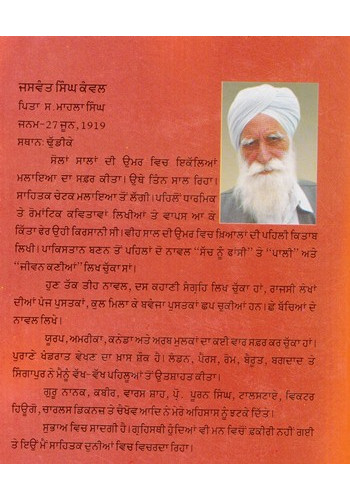 ਜਸਵੰਤ ਸਿੰਘ ਕੰਵਲ
ਪਿਤਾ ਸ. ਮਾਹਲਾ ਸਿੰਘ
ਜਨਮ–27 ਜੂਨ, 1919
ਸਥਾਨ: ਢੁੱਡੀਕੇ
ਸੋਲਾਂ ਸਾਲਾਂ ਦੀ ਉਮਰ ਵਿਚ ਇਕੱਲਿਆਂ
ਮਲਾਇਆ ਦਾ ਸਫ਼ਰ ਕੀਤਾ। ਉਥੇ ਤਿੰਨ ਸਾਲ ਰਿਹਾ।
ਸਾਹਿਤਕ ਚੇਟਕ ਮਲਾਇਆ ਤੋਂ ਲੱਗੀ। ਪਹਿਲੋਂ ਧਾਰਮਿਕ
ਤੇ ਰੋਮਾਂਟਿਕ ਕਵਿਤਾਵਾਂ ਲਿਖੀਆਂ ਤੇ ਵਾਪਸ ਆ ਕੇ
ਕਿੱਤਾ ਫੇਰ ਉਹੀ ਕਿਰਸਾਨੀ ਸੀ। ਵੀਹ ਸਾਲ ਦੀ ਉਮਰ ਵਿਚ ਖ਼ਿਆਲਾਂ ਦੀ ਪਹਿਲੀ ਕਿਤਾਬ
ਲਿਖੀ। ਪਾਕਿਸਤਾਨ ਬਣਨ ਤੋਂ ਪਹਿਲਾਂ ਦੋ ਨਾਵਲ "ਸੱਚ ਨੂੰ ਫਾਂਸੀ" ਤੇ "ਪਾਲੀ" ਅਤੇ
"ਜੀਵਨ ਕਣੀਆਂ" ਲਿਖ ਚੁੱਕਾ ਸਾਂ।
ਹੁਣ ਤੱਕ ਤੀਹ ਨਾਵਲ, ਦਸ ਕਹਾਣੀ ਸੰਗ੍ਰਹਿ ਲਿਖ ਚੁੱਕਾ ਹਾਂ, ਰਾਜਸੀ ਲੇਖਾਂ
ਦੀਆਂ ਪੰਜ ਪੁਸਤਕਾਂ, ਕੁਲ ਮਿਲਾ ਕੇ ਬਵੰਜਾ ਪੁਸਤਕਾਂ ਛਪ ਚੁਕੀਆਂ ਹਨ। ਛੇ ਬੱਚਿਆਂ ਦੇ
ਨਾਵਲ ਲਿਖੇ।
ਯੂਰਪ, ਅਮਰੀਕਾ, ਕਨੇਡਾ ਅਤੇ ਅਰਬ ਮੁਲਕਾਂ ਦਾ ਕਈ ਵਾਰ ਸਫ਼ਰ ਕਰ ਚੁੱਕਾ ਹਾਂ।
ਪੁਰਾਣੇ ਖੰਡਰਾਤ ਵੇਖਣ ਦਾ ਖ਼ਾਸ ਸ਼ੌਕ ਹੈ। ਲੰਡਨ, ਪੈਰਸ, ਰੋਮ, ਬੇਰੂਤ, ਬਗਦਾਦ ਤੇ
ਸਿੰਗਾਪੁਰ ਨੇ ਮੈਨੂੰ ਵੱਖ-ਵੱਖ ਪਹਿਲੂਆਂ ਤੋਂ ਉਤਸ਼ਾਹਤ ਕੀਤਾ।
ਗੁਰੂ ਨਾਨਕ, ਕਬੀਰ, ਵਾਰਸ ਸ਼ਾਹ, ਪ੍ਰੋ. ਪੂਰਨ ਸਿੰਘ, ਟਾਲਸਟਾਏ, ਵਿਕਟਰ
ਹਿਊਗੋ, ਚਾਰਲਸ ਡਿਕਨਜ਼ ਤੇ ਚੈਖੋਵ ਆਦਿ ਨੇ ਮੇਰੇ ਅਹਿਸਾਸ ਨੂੰ ਝਟਕੇ ਦਿੱਤੇ।
ਸੁਭਾਅ ਵਿਚ ਸਾਦਗੀ ਹੈ। ਗ੍ਰਹਿਸਥੀ ਹੁੰਦਿਆਂ ਵੀ ਮਨ ਵਿਚੋਂ ਫ਼ਕੀਰੀ ਨਹੀਂ ਗਈ
ਤੇ ਇਉਂ ਮੈਂ ਸਾਹਿਤਕ ਦੁਨੀਆਂ ਵਿਚ ਵਿਚਰਦਾ ਰਿਹਾ।